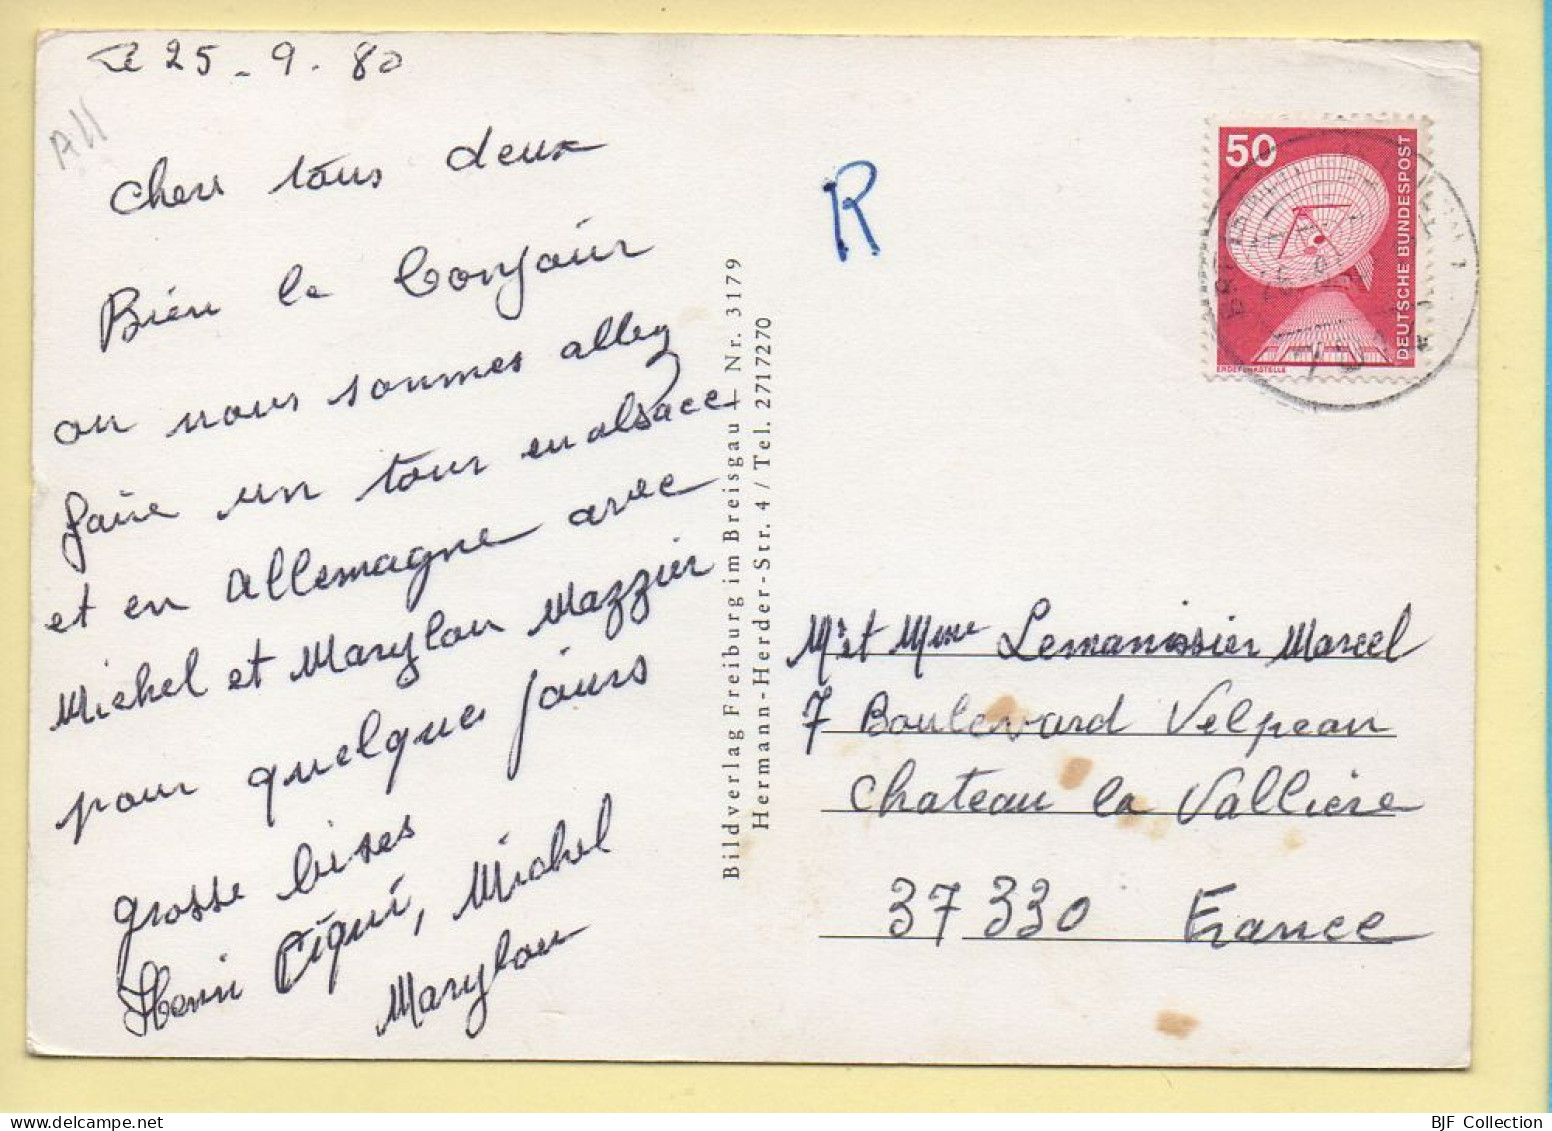 Le 25 - 9 - 80
All
Chers tous deux
Bien le bonjour
on nous sommes allez
faire un tour en alsace
et en allemagne avec
Michel et Marylou Mazzier
pour quelques jours
grosse bises
Henri Piqui, Michel
Marylou
Bildverlag Freiburg im Breisgau – Nr. 3179
Hermann-Herder-Str. 4 / Tel. 2717270
R
50
DEUTSCHE BUNDESPOST
ERDEFUNKSTELLE
Mr et Mme Lemanissier Marcel
7 Boulevard Velpeau
Chateau la Valliere
37330 France
BJF Collection